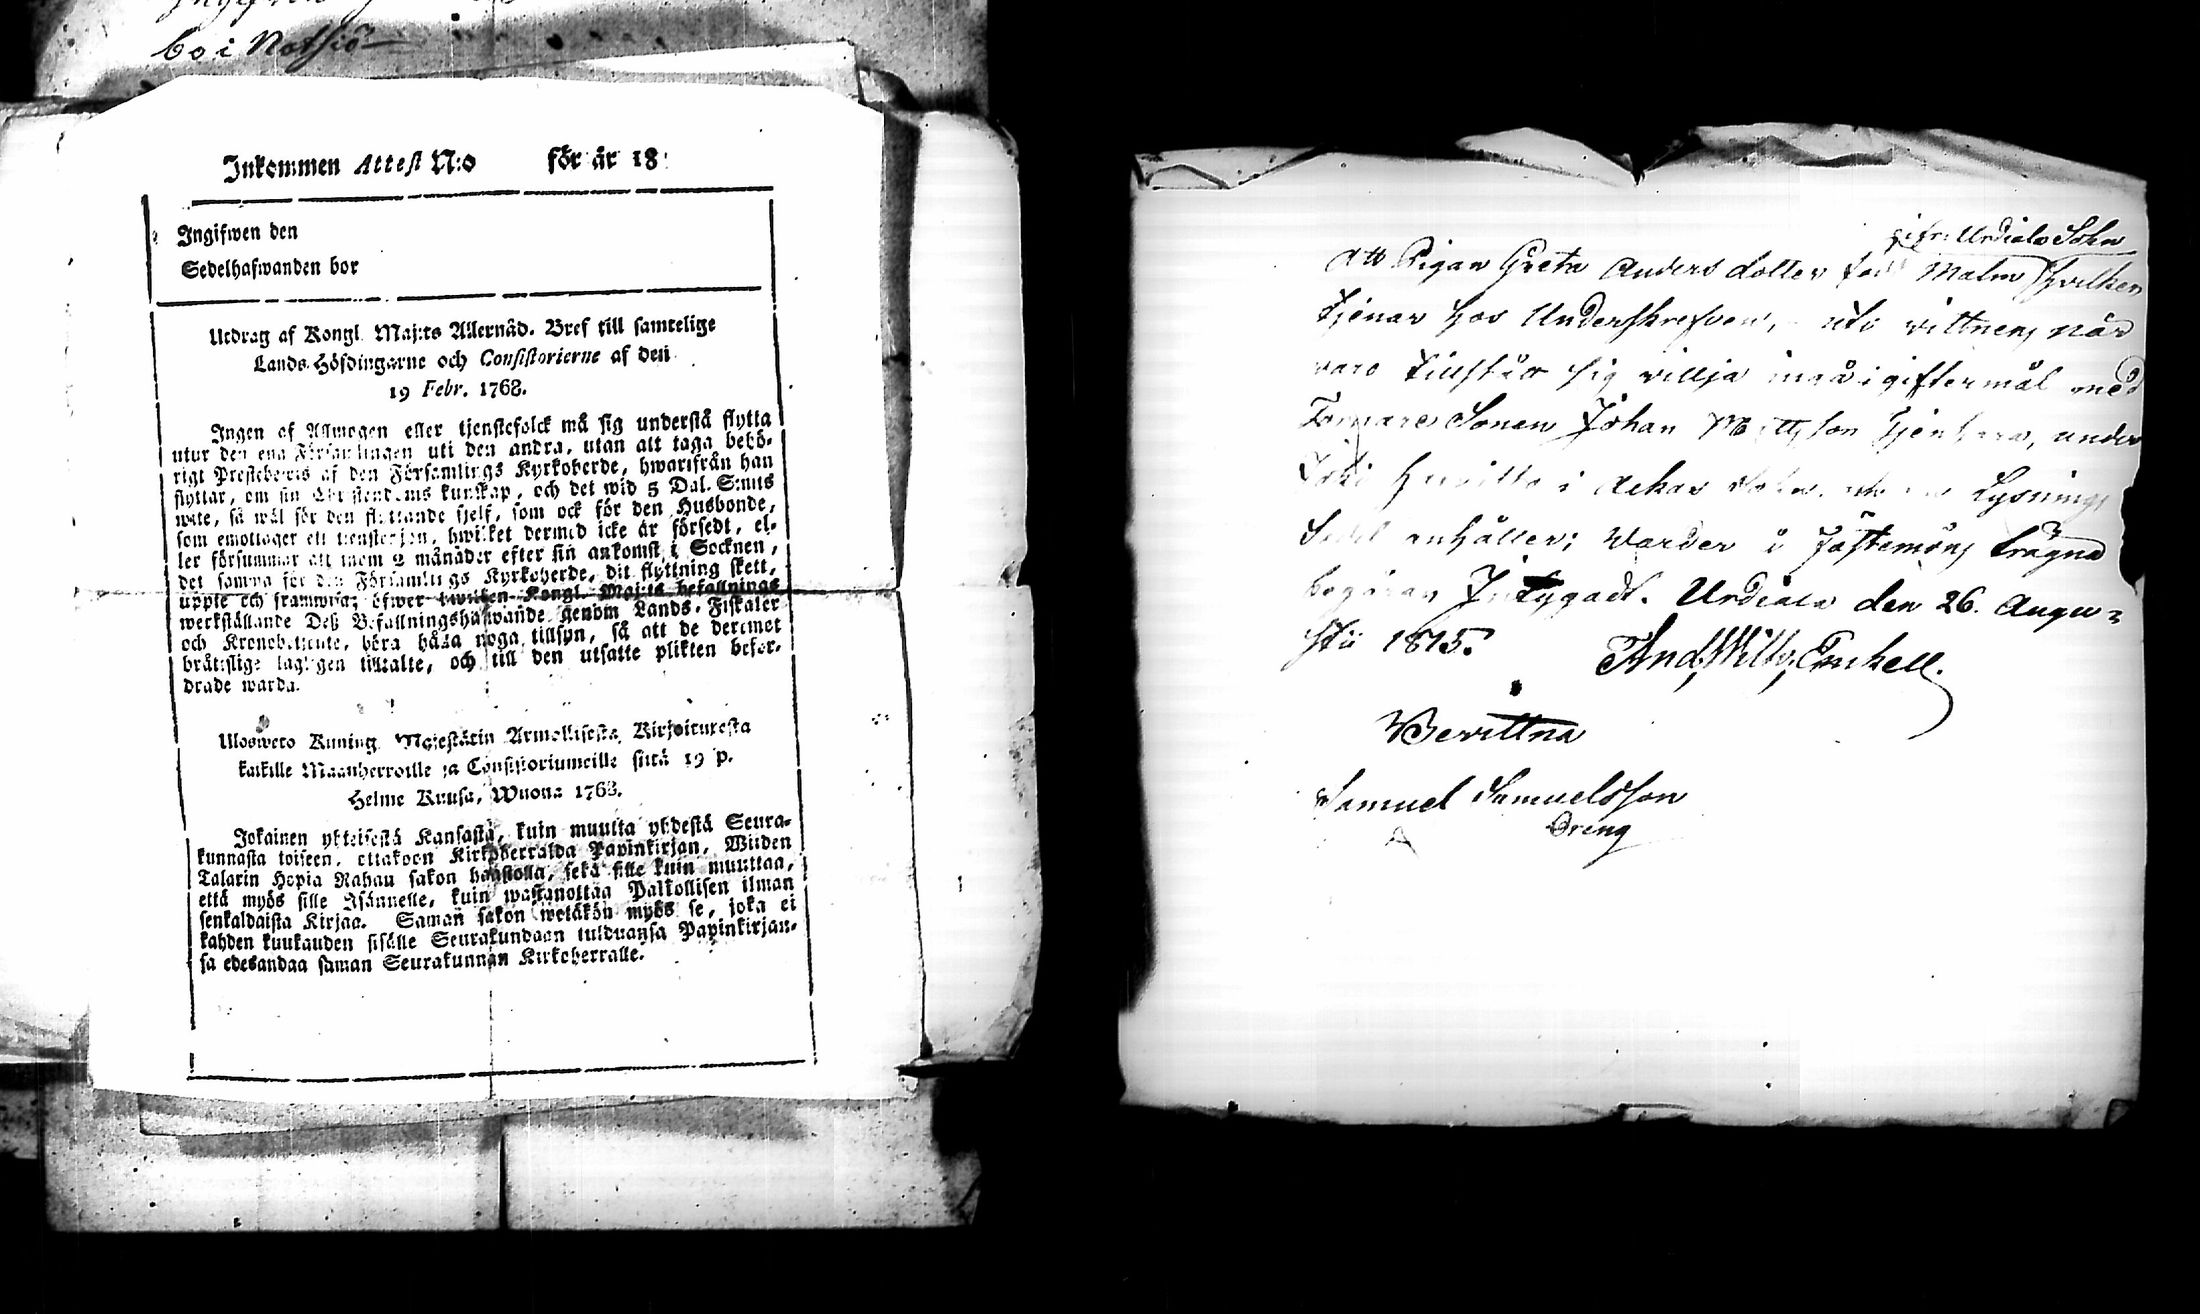 bo i Notsiö
Inkommen Attest N:o för år 18
Ingifwen den
Sedelhafwanden bor
Utdrag af Kongl. Maj:ts Allernåd. Bref till samtelige
Lands-Höfdingarne och Consistorierne af den
19 Febr. 1768.
Ingen af Allmogen eller tjenstefolck må sig understå flytta
utur den ena Församlingen uti den andra, utan att taga behö-
rigt Prestebewis af den Församlings Kyrkoherde, hwarifrån han
flyttar, om sin Christendoms kunskap, och det wid 5 Dal. S:mts
wite, så wäl för den flyttande sjelf, som ock för den Husbonde,
som emottager ett tienstehjon, hwilket dermed icke är försedt, el-
ler försummar att inom 2 månader efter sin ankomst i Socknen,
det samma för den Församlings Kyrkoherde, dit flyttning skett,
uppte och framwisa; öfwer hwilken Kongl. Maj:ts befallnings
werkställande Deß Befallningshafwande genom Lands-Fiskaler
och Kronobetiente, böra hafwa noga tillsyn, så att de deremot
bråtslige lagligen tilltalte, och till den utsatte plikten befor-
drade warda.
Ulosweto Kuning. Majestätin Armollisesta Kirjoituxesta
kaikille Maanherroille ja Consistoriumeille siitä 19 p.
Helme Kuusa, Wuona 1763.
Jokainen yhteisestä Kansasta, kuin muutta yhdestä Seura-
kunnasta toiseen, ottakoon Kirkoherralda Papinkirjan, Wiiden
Talarin Hopia Rahan sakon haastolla, sekä sille kuin muuttaa,
että myös sille Isännelle, kuin wastanottaa Palkollisen ilman
senkaldaista Kirjaa. Saman sakon wetäkön myös se, joka ei
kahden kuukauden sisälle Seurakundaan tulduansa Papinkirjan-
sa edesandaa saman Seurakunnan Kirkoherralle.
Urdiala Sokn
Att Pigan Greta Anders dotter Malm hvilken
tjenar hos Underskrefven, uti vittnens när
varo tillstått sig villja ingå i giftermål med
Sonen Johan Mattsson under
i Ackas Lysnings
Sedel anhåller; Varder å Fästemöns trägna
begäran Intygadt. Urdiala den 26. Augu-
stii 1815. And, Wilh, Enckell.
Bevittna
Samuel Samuelsson
Dreng